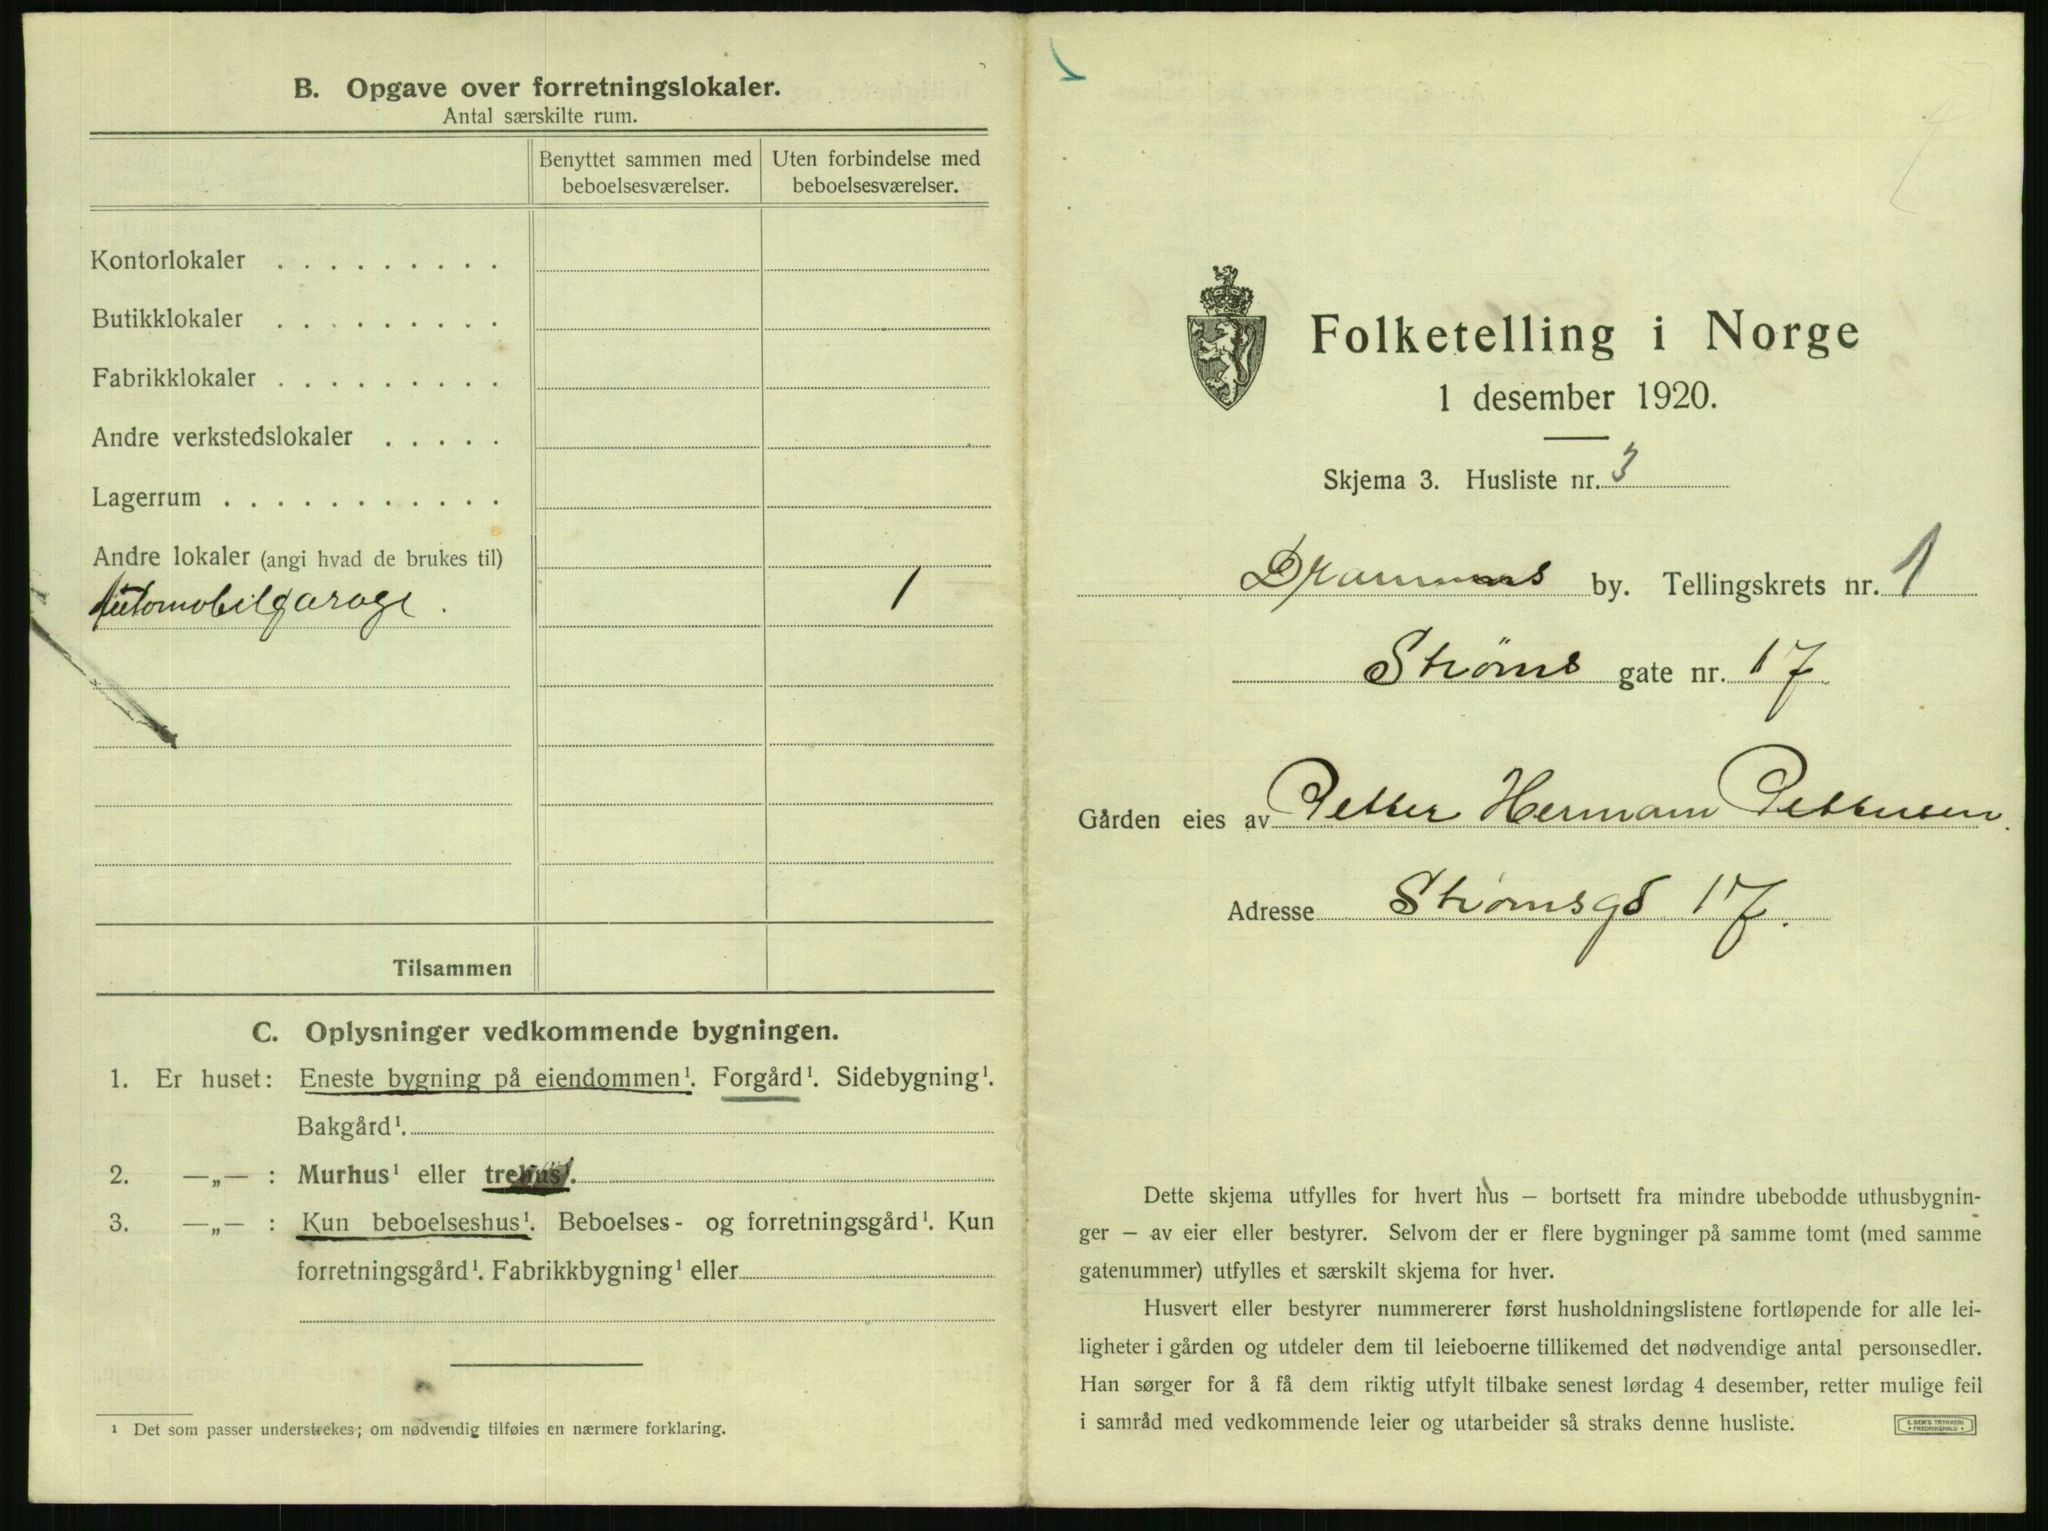 B. Opgave over forretningslokaler.
Antal særskilte rum.
Benyttet sammen med beboelsesværelser.
Uten forbindelse med beboelsesværelser.
Kontorlokaler . . . . . . . . .
Butikklokaler . . . . . . . . .
Fabrikklokaler . . . . . . . . .
Andre verkstedslokaler . . . . .
Lagerrum . . . . . . . . . . .
Andre lokaler (angi hvad de brukes til)
Automobilgarage . 1
Tilsammen
C. Oplysninger vedkommende bygningen.
1. Er huset: Eneste bygning på eiendommen¹. Forgård¹. Sidebygning¹.
Bakgård¹.
2. —„— : Murhus¹ eller trehus¹.
3. —„— : Kun beboelseshus¹. Beboelses- og forretningsgård¹. Kun
forretningsgård¹. Fabrikkbygning¹ eller
¹ Det som passer understrekes; om nødvendig tilføies en nærmere forklaring.
Folketelling i Norge
1 desember 1920.
Skjema 3. Husliste nr. 3
Drammens by. Tellingskrets nr. 1
Strøms gate nr. 17
Gården eies av Petter Hermann Pettersen.
Adresse Strømsgd 17.
Dette skjema utfylles for hvert hus – bortsett fra mindre ubebodde uthusbygnin-
ger – av eier eller bestyrer. Selvom der er flere bygninger på samme tomt (med samme
gatenummer) utfylles et særskilt skjema for hver.
Husvert eller bestyrer nummererer først husholdningslistene fortløpende for alle lei-
ligheter i gården og utdeler dem til leieboerne tillikemed det nødvendige antal personsedler.
Han sørger for å få dem riktig utfylt tilbake senest lørdag 4 desember, retter mulige feil
i samråd med vedkommende leier og utarbeider så straks denne husliste.
E. SEM'S TRYKKERI
FREDRIKSHALD